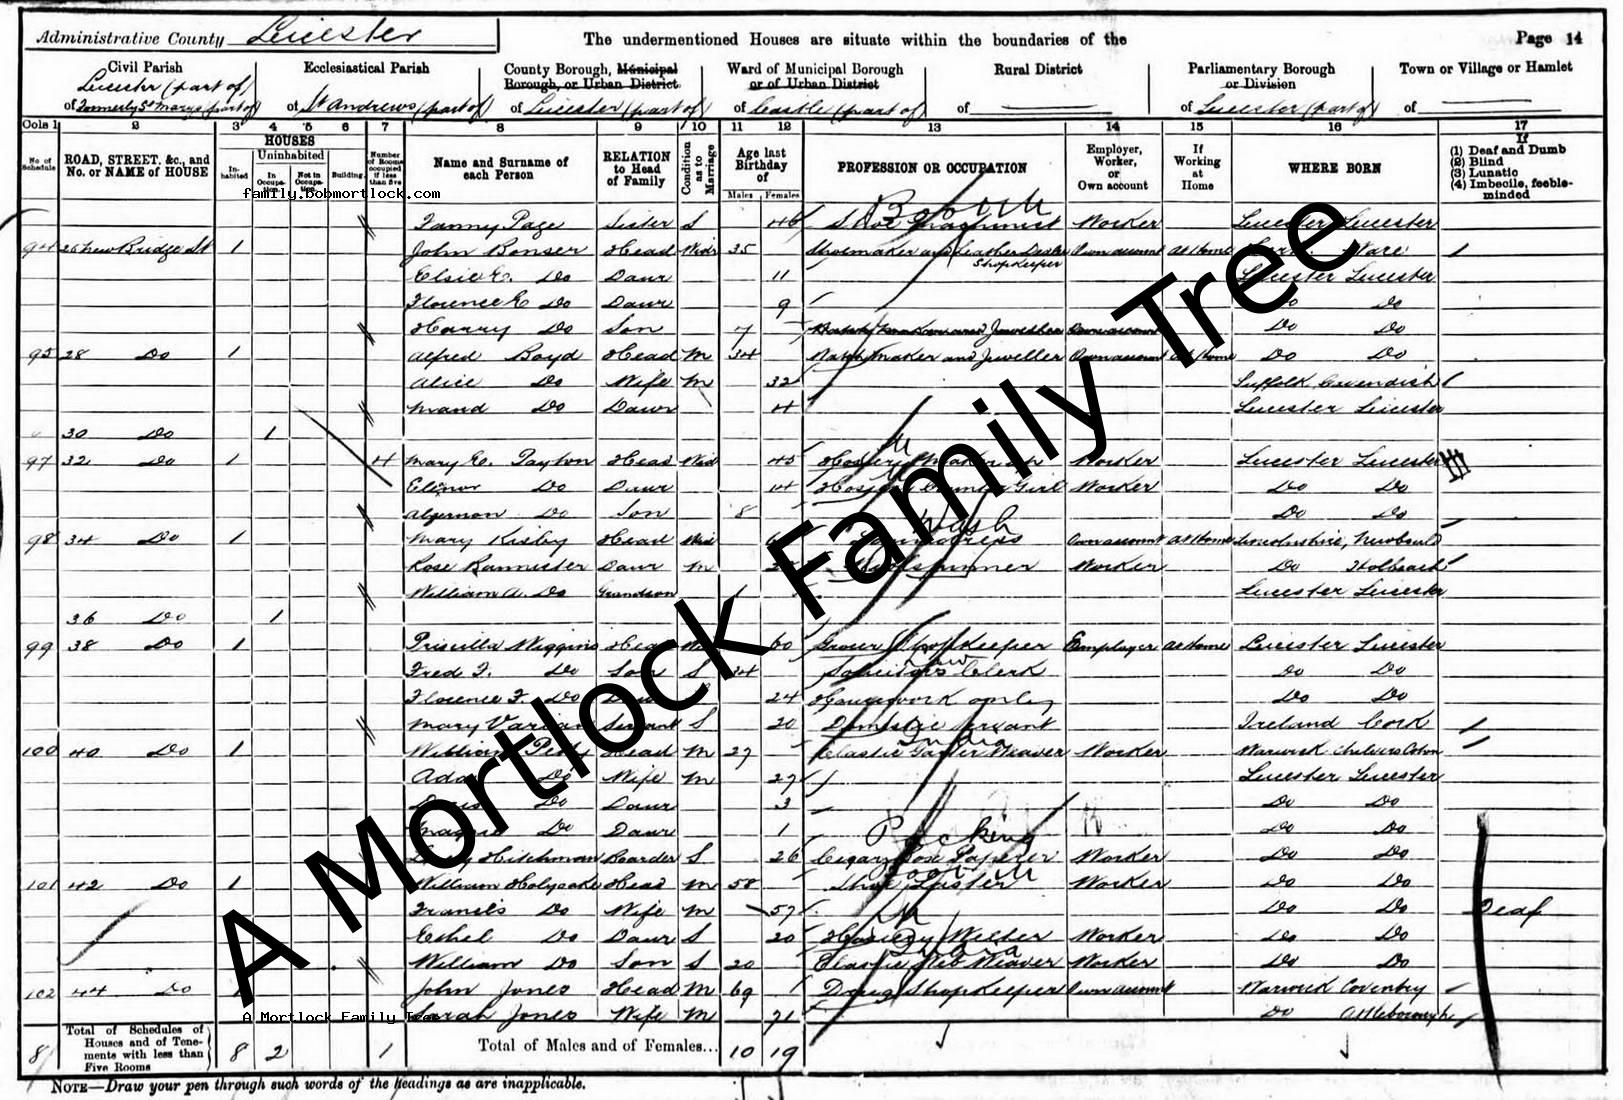 Administrative County Leicester
The undermentioned Houses are situate within the boundaries of the
Page 14
Civil Parish
Leicester (part of)
of formerly St Marys (part of)
Ecclesiastical Parish
of St Andrews (part of)
County Borough, Municipal
Borough, or Urban District
of Leicester (part of)
Ward of Municipal Borough
or of Urban District
of Castle (part of)
Rural District
of
Parliamentary Borough
or Division
of Leicester (part of)
Town or Village or Hamlet
of
Cols 1 2 3 4 5 6 7 8 9 10 11 12 13 14 15 16 17
No of Schedule
ROAD, STREET, &c., and No. or NAME of HOUSE
HOUSES
In-habited
Uninhabited
In Occupa-tion
Not in Occupa-tion
Building
Number of Rooms occupied if less than five
Name and Surname of each Person
RELATION to Head of Family
Condition as to Marriage
Age last Birthday of
Males Females
PROFESSION OR OCCUPATION
Employer, Worker, or Own account
If Working at Home
WHERE BORN
If
(1) Deaf and Dumb
(2) Blind
(3) Lunatic
(4) Imbecile, feeble-minded
family.bobmortlock.com
Fanny Page Sister S 46 Shoe Machinist Worker Leicester Leicester
94 26 New Bridge St 1 John Bonser Head Widr 35 Shoemaker and Leather Dealer Shopkeeper Own account At Home Ware
Elsie E. Do Daur 11 Leicester Leicester
Florence E Do Daur 9 Do Do
Harry Do Son 7 Do Do
95 28 Do 1 Alfred Boyd Head M 34 Watch maker and Jeweller Own account At home Do Do
Alice Do Wife M 32 Suffolk Cavendish
Maud Do Daur 4 Leicester Leicester
30 Do 1
97 32 Do 1 4 Mary E. Taylor Head Wid 45 Hosiery Worker Leicester Leicester
Elinor Do Daur 14 Girl Worker Do Do
Algernon Do Son 8 Do Do
98 34 Do 1 Mary Kisby Head Wid Wash Laundress Own account At Home Lincolnshire,
Rose Bannister Daur M Worker Do Holbeach
William A. Do Grandson 1 Leicester Leicester
36 Do 1
99 38 Do 1 Priscilla Wiggins Head 60 Grocer Shopkeeper Employer At Home Leicester Leicester
Fred F. Do Son S 34 Solicitors Clerk Do Do
Florence F. Do S 24 Housework only Do Do
Mary Servant S 20 Domestic Servant Ireland Cork
100 40 Do 1 William Head M 27 Elastic Weaver Worker Warwick Chilvers Coton
Ada Do Wife M 27 Leicester Leicester
Do Daur 3 Do Do
Do Daur 1 Do Do
Hitchman Boarder S 26 Cigar Box Paperer Worker Do Do
101 42 Do 1 William Holyoake Head M 58 Shoe Worker Do Do
Francis Do Wife M 57 Do Do Deaf
Ethel Do Daur S 20 Hosiery Welter Worker Do Do
William Do Son S 20 Elastic Web Weaver Worker Do Do
102 44 Do John Jones Head M 69 Drug Shopkeeper Own account Warwick Coventry
Sarah Jones Wife M 71 Do Attleborough
A Mortlock Family Tree
A Mortlock Family Tree
8 Total of Schedules of Houses and of Tene-ments with less than Five Rooms 8 2 1 Total of Males and of Females... 10 19
NOTE—Draw your pen through such words of the headings as are inapplicable.